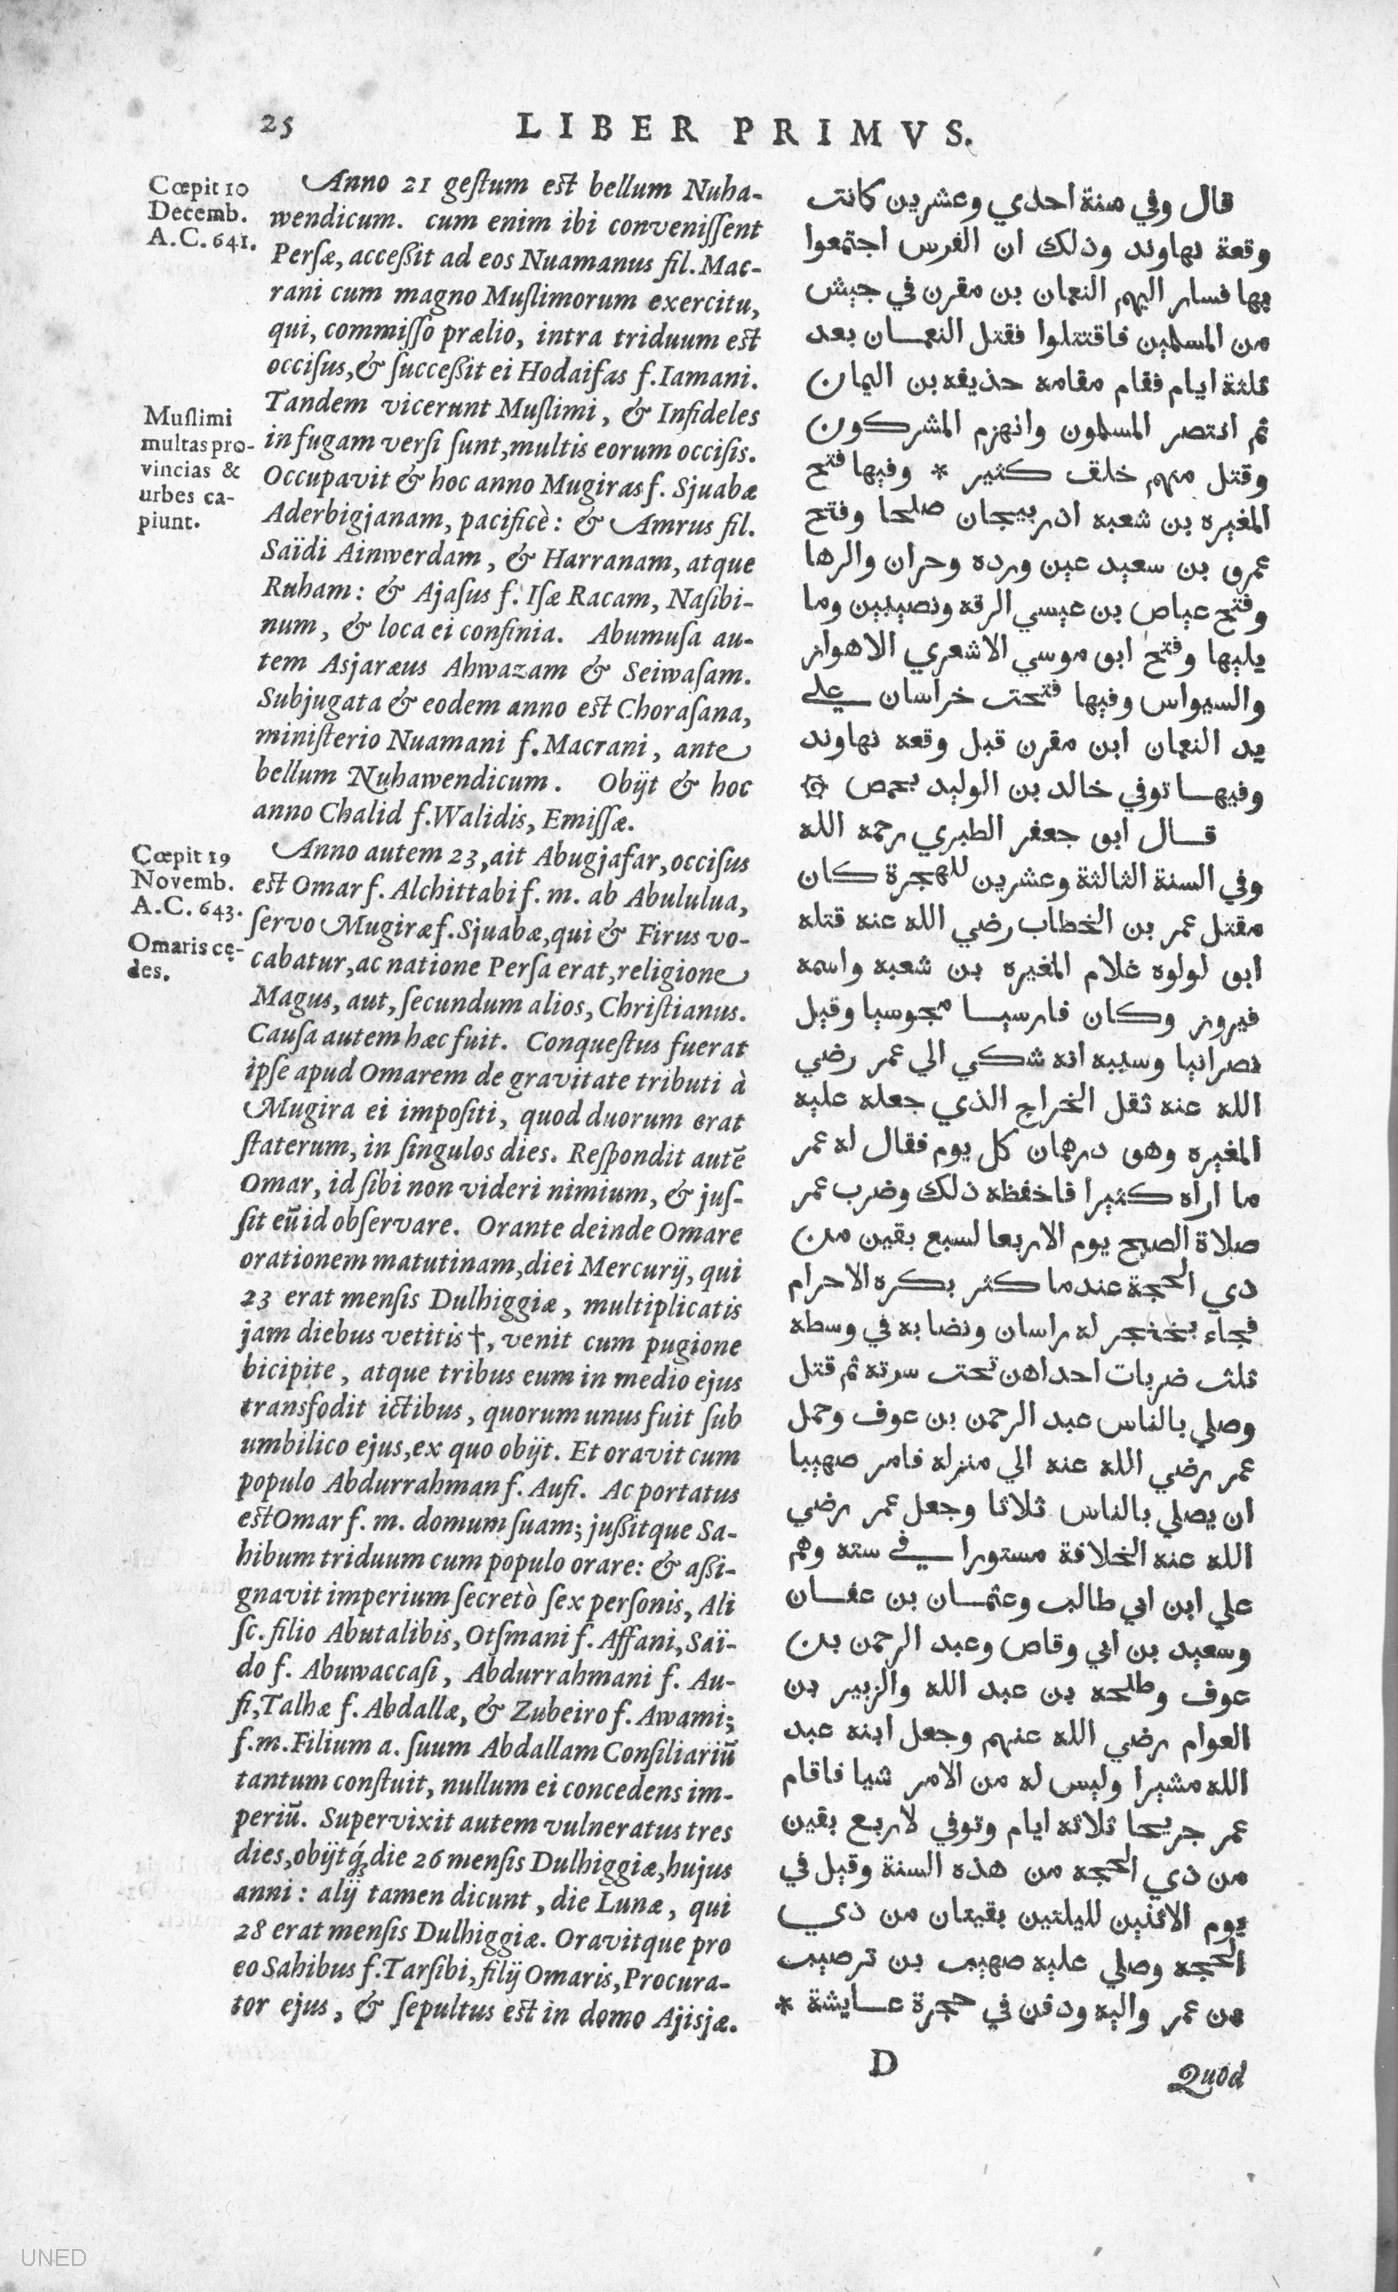 25
LIBER PRIMVS.
Cœpit 10
Decemb.
A.C. 641.
Anno 21 gestum est bellum Nuha-
wendicum. cum enim ibi convenissent
Persæ, accessit ad eos Nuamanus fil. Mac-
rani cum magno Muslimorum exercitu,
qui, commisso prælio, intra triduum est
occisus, & successit ei Hodaifas f. Iamani.
Tandem vicerunt Muslimi, & Infideles
in fugam versi sunt, multis eorum occisis.
Occupavit & hoc anno Mugiras f. Sjuabæ
Aderbigjanam, pacificè: & Amrus fil.
Saïdi Ainwerdam, & Harranam, atque
Ruham: & Ajasus f. Isæ Racam, Nasibi-
num, & loca ei confinia. Abumusa au-
tem Asjaræus Ahwazam & Seiwasam.
Subjugata & eodem anno est Chorasana,
ministerio Nuamani f. Macrani, ante
bellum Nuhawendicum. Obijt & hoc
anno Chalid f. Walidis, Emissæ.
Muslimi
multas pro-
vincias &
urbes ca-
piunt.
Anno autem 23, ait Abugjafar, occisus
est Omar f. Alchittabi f. m. ab Abululua,
servo Mugiræ f. Sjuabæ, qui & Firus vo-
cabatur, ac natione Persa erat, religione
Magus, aut, secundum alios, Christianus.
Causa autem hæc fuit. Conquestus fuerat
ipse apud Omarem de gravitate tributi à
Mugira ei impositi, quod duorum erat
staterum, in singulos dies. Respondit autē
Omar, id sibi non videri nimium, & jus-
sit eū id observare. Orante deinde Omare
orationem matutinam, diei Mercurij, qui
23 erat mensis Dulhiggiæ, multiplicatis
jam diebus vetitis †, venit cum pugione
bicipite, atque tribus eum in medio ejus
transfodit ictibus, quorum unus fuit sub
umbilico ejus, ex quo obijt. Et oravit cum
populo Abdurrahman f. Aufi. Ac portatus
est Omar f. m. domum suam; jussitque Sa-
hibum triduum cum populo orare: & assi-
gnavit imperium secretò sex personis, Ali
sc. filio Abutalibis, Otsmani f. Affani, Saï-
do f. Abuwaccasi, Abdurrahmani f. Au-
fi, Talhæ f. Abdallæ, & Zubeiro f. Awami;
f. m. Filium a. suum Abdallam Consiliariū
tantum constuit, nullum ei concedens im-
periū. Supervixit autem vulneratus tres
dies, obijtq́; die 26 mensis Dulhiggiæ, hujus
anni: alij tamen dicunt, die Lunæ, qui
28 erat mensis Dulhiggiæ. Oravitque pro
eo Sahibus f. Tarsibi, filij Omaris, Procura-
tor ejus, & sepultus est in domo Ajisjæ.
Cœpit 19
Novemb.
A.C. 643.
Omaris cę-
des.
قال وفي سنة احدي وعشرين كانت
وقعة نهاوند وذلك ان الفرس اجتمعوا
بها فسار اليهم النعمان بن مقرن في جيش
من المسلمين فاقتتلوا فقتل النعمان بعد
ثلثة ايام فقام مقامه حذيفه بن اليمان
ثم انتصر المسلمون وانهزم المشركون
وقتل منهم خلق كثير * وفيها فتح
المغيره بن شعبه اذربيجان صلحا وفتح
عمرو بن سعيد عين ورده وحران والرها
وفتح عياص بن عيسي الرقه ونصيبين وما
يليها وفتح ابو موسي الاشعري الاهواز
والسيواس وفيها فتحت خراسان علي
يد النعمان ابن مقرن قبل وقعه نهاوند
وفيها توفي خالد بن الوليد بحمص ۞
قال ابو جعفر الطبري رحمه الله
وفي السنة الثالثة وعشرين للهجرة كان
مقتل عمر بن الخطاب رضي الله عنه قتله
ابو لولوه غلام المغيره بن شعبه واسمه
فيروز وكان فارسيا مجوسيا وقيل
نصرانيا وسببه انه شكي الي عمر رضي
الله عنه ثقل الخراج الذي جعله عليه
المغيره وهو درهمان كل يوم فقال له عمر
ما اراه كثيرا فاحفظه ذلك وضرب عمر
صلاة الصبح يوم الاربعا لسبع بقين من
ذي الحجة عندما كثر بكره الاحرام
فجاء بخنجر له راسان ونضابه في وسطه
ثلث ضربات احداهن تحت سرته ثم قتل
وصلي بالناس عبد الرحمن بن عوف وحمل
عمر رضي الله عنه الي منزله فامر صهيبا
ان يصلي بالناس ثلاثا وجعل عمر رضي
الله عنه الخلافة مستورا في سته وهم
علي ابن ابي طالب وعثمان بن عفان
وسعيد بن ابي وقاص وعبد الرحمن بن
عوف وطلحه بن عبد الله والزبير بن
العوام رضي الله عنهم وجعل ابنه عبد
الله مشيرا وليس له من الامر شيا فاقام
عمر جريحا ثلاثه ايام وتوفي لاربع بقين
من ذي الحجه من هذه السنة وقيل في
يوم الاثنين لليلتين بقيتان من ذي
الحجه وصلي عليه صهيب بن ترصيب
بن عمر واليه ودفن في حجرة عايشة *
D
Quod
UNED